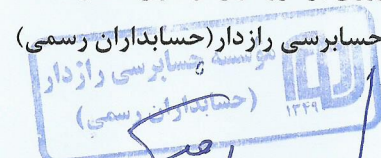 حسابرسی رازدار(حسابداران رسمی)
موسسه حسابرسی رازدار
(حسابداران رسمی)
۱۳۴۹